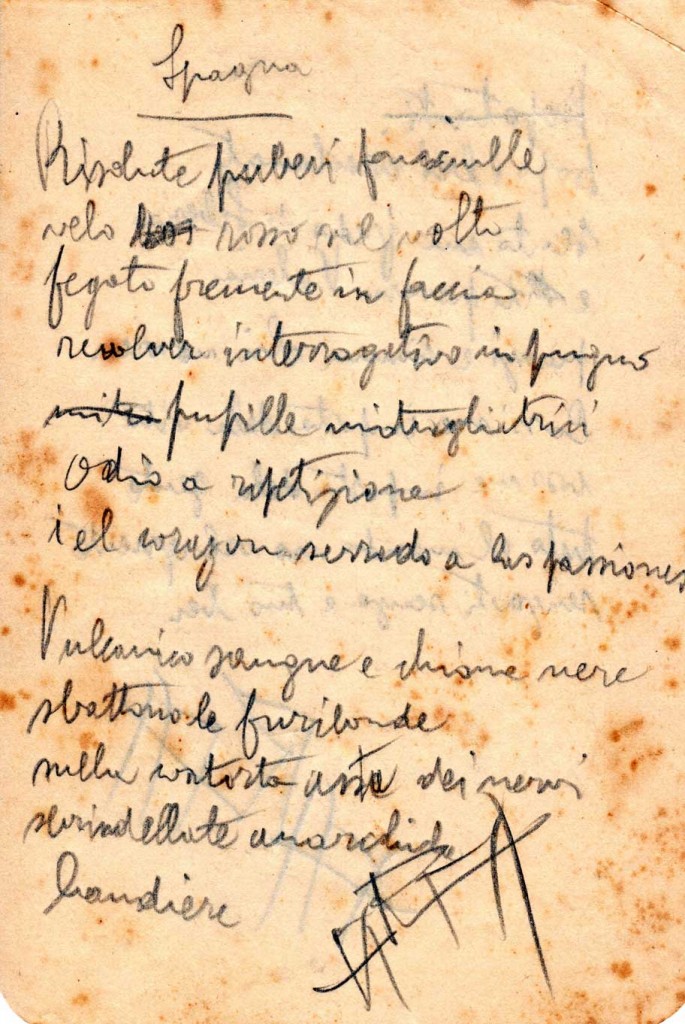 Spagna
Risolute puberi fanciulle
velo rosso sul volto
fegato fremente in faccia
revolver interrogativo in pugno
pupille mitragliatrici
odio a ripetizione
i el corazon serrado a las passiones
Vulcanico sangue e chiome nere
sbattono le furibonde
sulla contorta asta dei nervi
sbrindellate anarchiche
bandiere